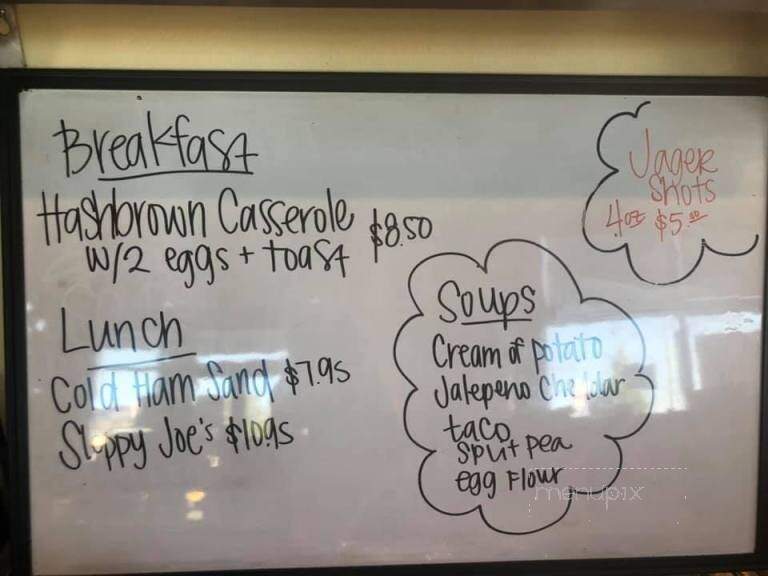 Breakfast
Hashbrown Casserole $8.50
w/2 eggs + toast
Lunch
Cold Ham Sand $7.95
Sloppy Joe's $10.95
Jager
Shots
4oz $5.00
Soups
Cream of potato
Jalepeno Cheddar
taco
split pea
egg Flour
menupix